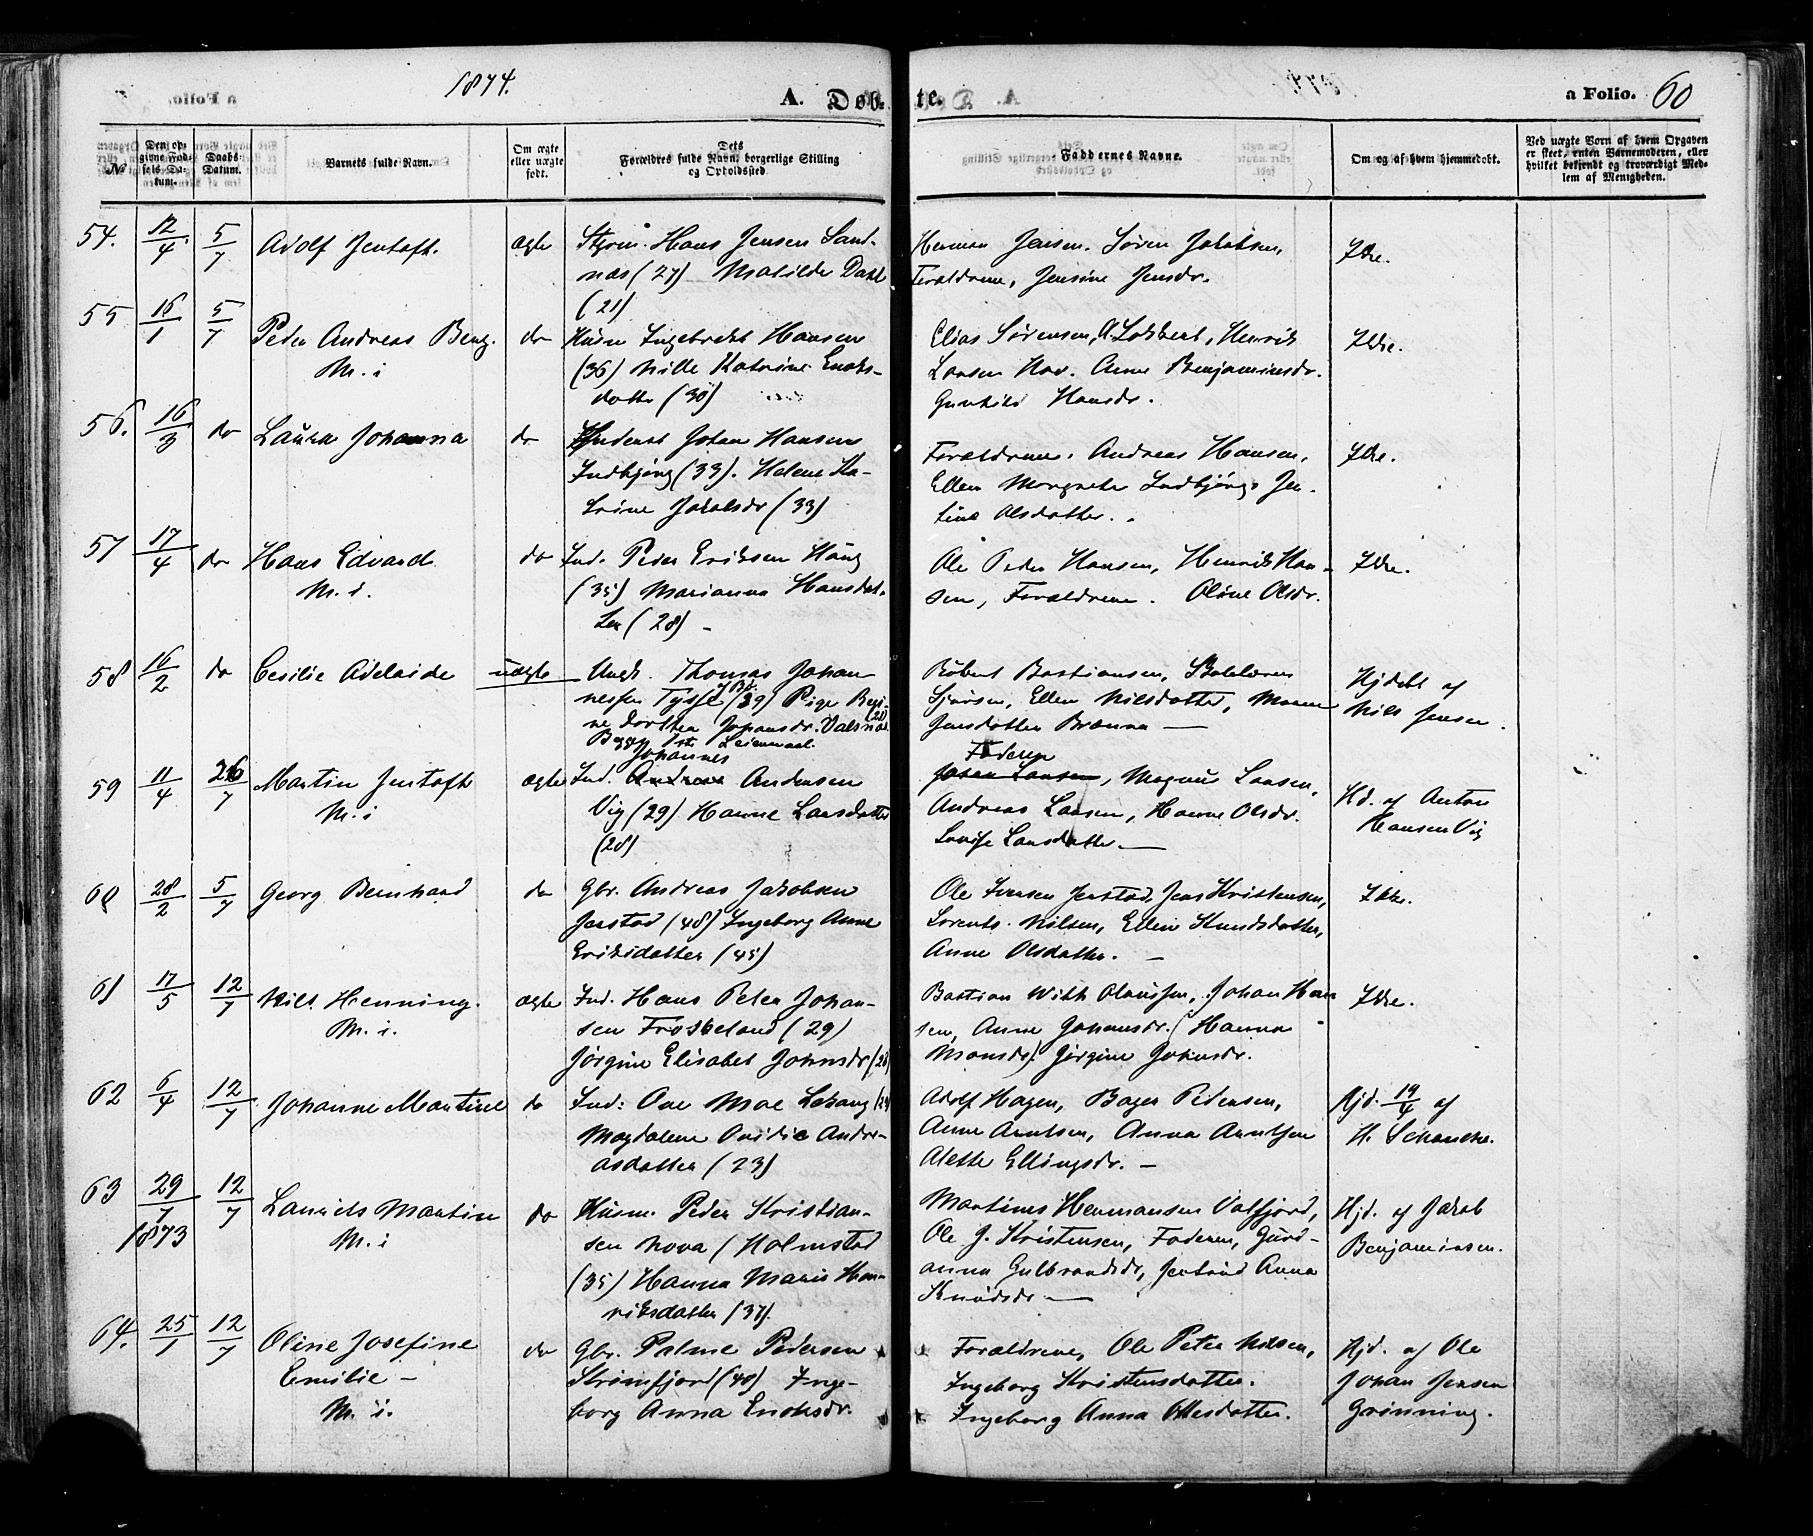 1874.
A. Døbte.
a Folio. 60
No
Den opgivne Fødsels-Datum.
Daabs-Datum.
Barnets fulde Navn.
Om ægte eller uægte født.
Dets Forældres fulde Navn, borgerlige Stilling og Opholdssted.
Faddernes Navne.
Om og af hvem hjemmedøbt.
Ved uægte Børn af hvem Opgaven er skeet, enten Barnemoderen, eller hvilket bekjendt og troværdigt Medlem af Menigheden.
54. 12/4 5/7 Adolf Jentoft. ægte
Styrm. Hans Jensen Sand-
næs (27) Matilde Dahl
(21)
Herman Jensen. Søren Jakobsen,
Forældrene, Jensine Jensdr.
Ikke.
55 16/1 5/7 Peder Andreas Berg.
M. i
do
Husm Ingebrekt Hansen
(36) Nille Katrine Enoks-
datter (30)
Elias Sørensen, A. Lokkert, Henrik
Larsen Hov. Anne Benjaminsdr.
Gunhild Hansdr.
Ikke.
56. 16/3 do Laura Johanna do
Inderst Johan Hansen
Indbjörg (33). Helene Ka-
trine Jakobsdr (33)
Forældrene. Andreas Hansen,
Ellen Margrete Indbjörg, Jen-
sine Olsdatter.
Ikke.
57 17/4 do Hans Edvard
M. i.
do
Ind. Peder Eriksen Haug
(35) Marianna Hansdat-
ter (28) -
Ole Peder Hansen, Henrik Han-
sen, Forældrene. Oline Olsdr.
Ikke.
58 16/2 do Cesilie Adelaide uægte
Ungk. Thomas Johan-
nessen Tysse (29) Pige Regi-
ne Dorthea Johansdr. Valsnæs (28)
Begges 1ste Leiermaal.
Robert Bastiansen, Skolelærer
Sjursen, Ellen Nilsdatter, Maren
Jensdatter Brænna —
Hjdøbt af
Nils Jensen.
59 11/4 26/7 Martin Jentoft
M. i
ægte
Johannes
Ind. Andreas Andersen
Vig (29) Hanne Larsdatter
(28)
Faderen
Johan Larsen, Magnus Larsen,
Andreas Larsen, Hanne Olsdr.
Lovise Larsdatter. —
Hd. af Anton
Hansen Vig
60 28/2 5/7 Georg Bernhard do
Gbr. Andreas Jakobsen
Jenstad (48) Ingeborg Anne
Eriksdatter (45)
Ole Iversen Jenstad, Jens Kristensen,
Lorents Nilsen, Ellen Knudsdatter,
Anne Olsdatter. —
Ikke.
61 17/5 12/7 Nils Henning.
M. i.
ægte
Ind. Hans Peter Johan-
sen Froskeland (29)
Jørgine Elisabet Johnsdr (28)
Bastian With Olaussen, Johan Han-
sen, Anne Johansdr. (Hanna
Monsdr) Jørgine Johnsdr.
Ikke.
62 6/4 12/7 Johanne Martine do
Ind: Ove Moe Lekang (29)
Magdalene Ovidie Andre-
asdatter (23)
Adolf Hagen, Bager Pedersen,
Anne Arntsen, Anna Arntsen
Alette Ellingsdr. —
Hjd. 19/4 af
H. Schanche.
63 29/7 1873 12/7 Laurits Martin
M. i
do
Husm. Peder Kristian-
sen Nova (Holmstad
(35) Hanna Maria Hen-
riksdatter (37).
Martinus Hermansen Valfjord,
Ole J. Kristensen, Faderen, Gurd-
anna Gulbrandsdr, Jertrud Anna
Knudsdr —
Hjd. af Jakob
Benjaminsen.
64. 25/1 12/7 Oline Josefine
Emilie -
M. i.
do
Gbr. Palme Pedersen
Strømfjord (40) Inge-
borg Anna Enoksdr.
Forældrene, Ole Peter Nilsen,
Ingeborg Kristensdatter.
Ingeborg Anna Olesdatter.
Hjd. af Ole
Johan Jensen
Grønning.